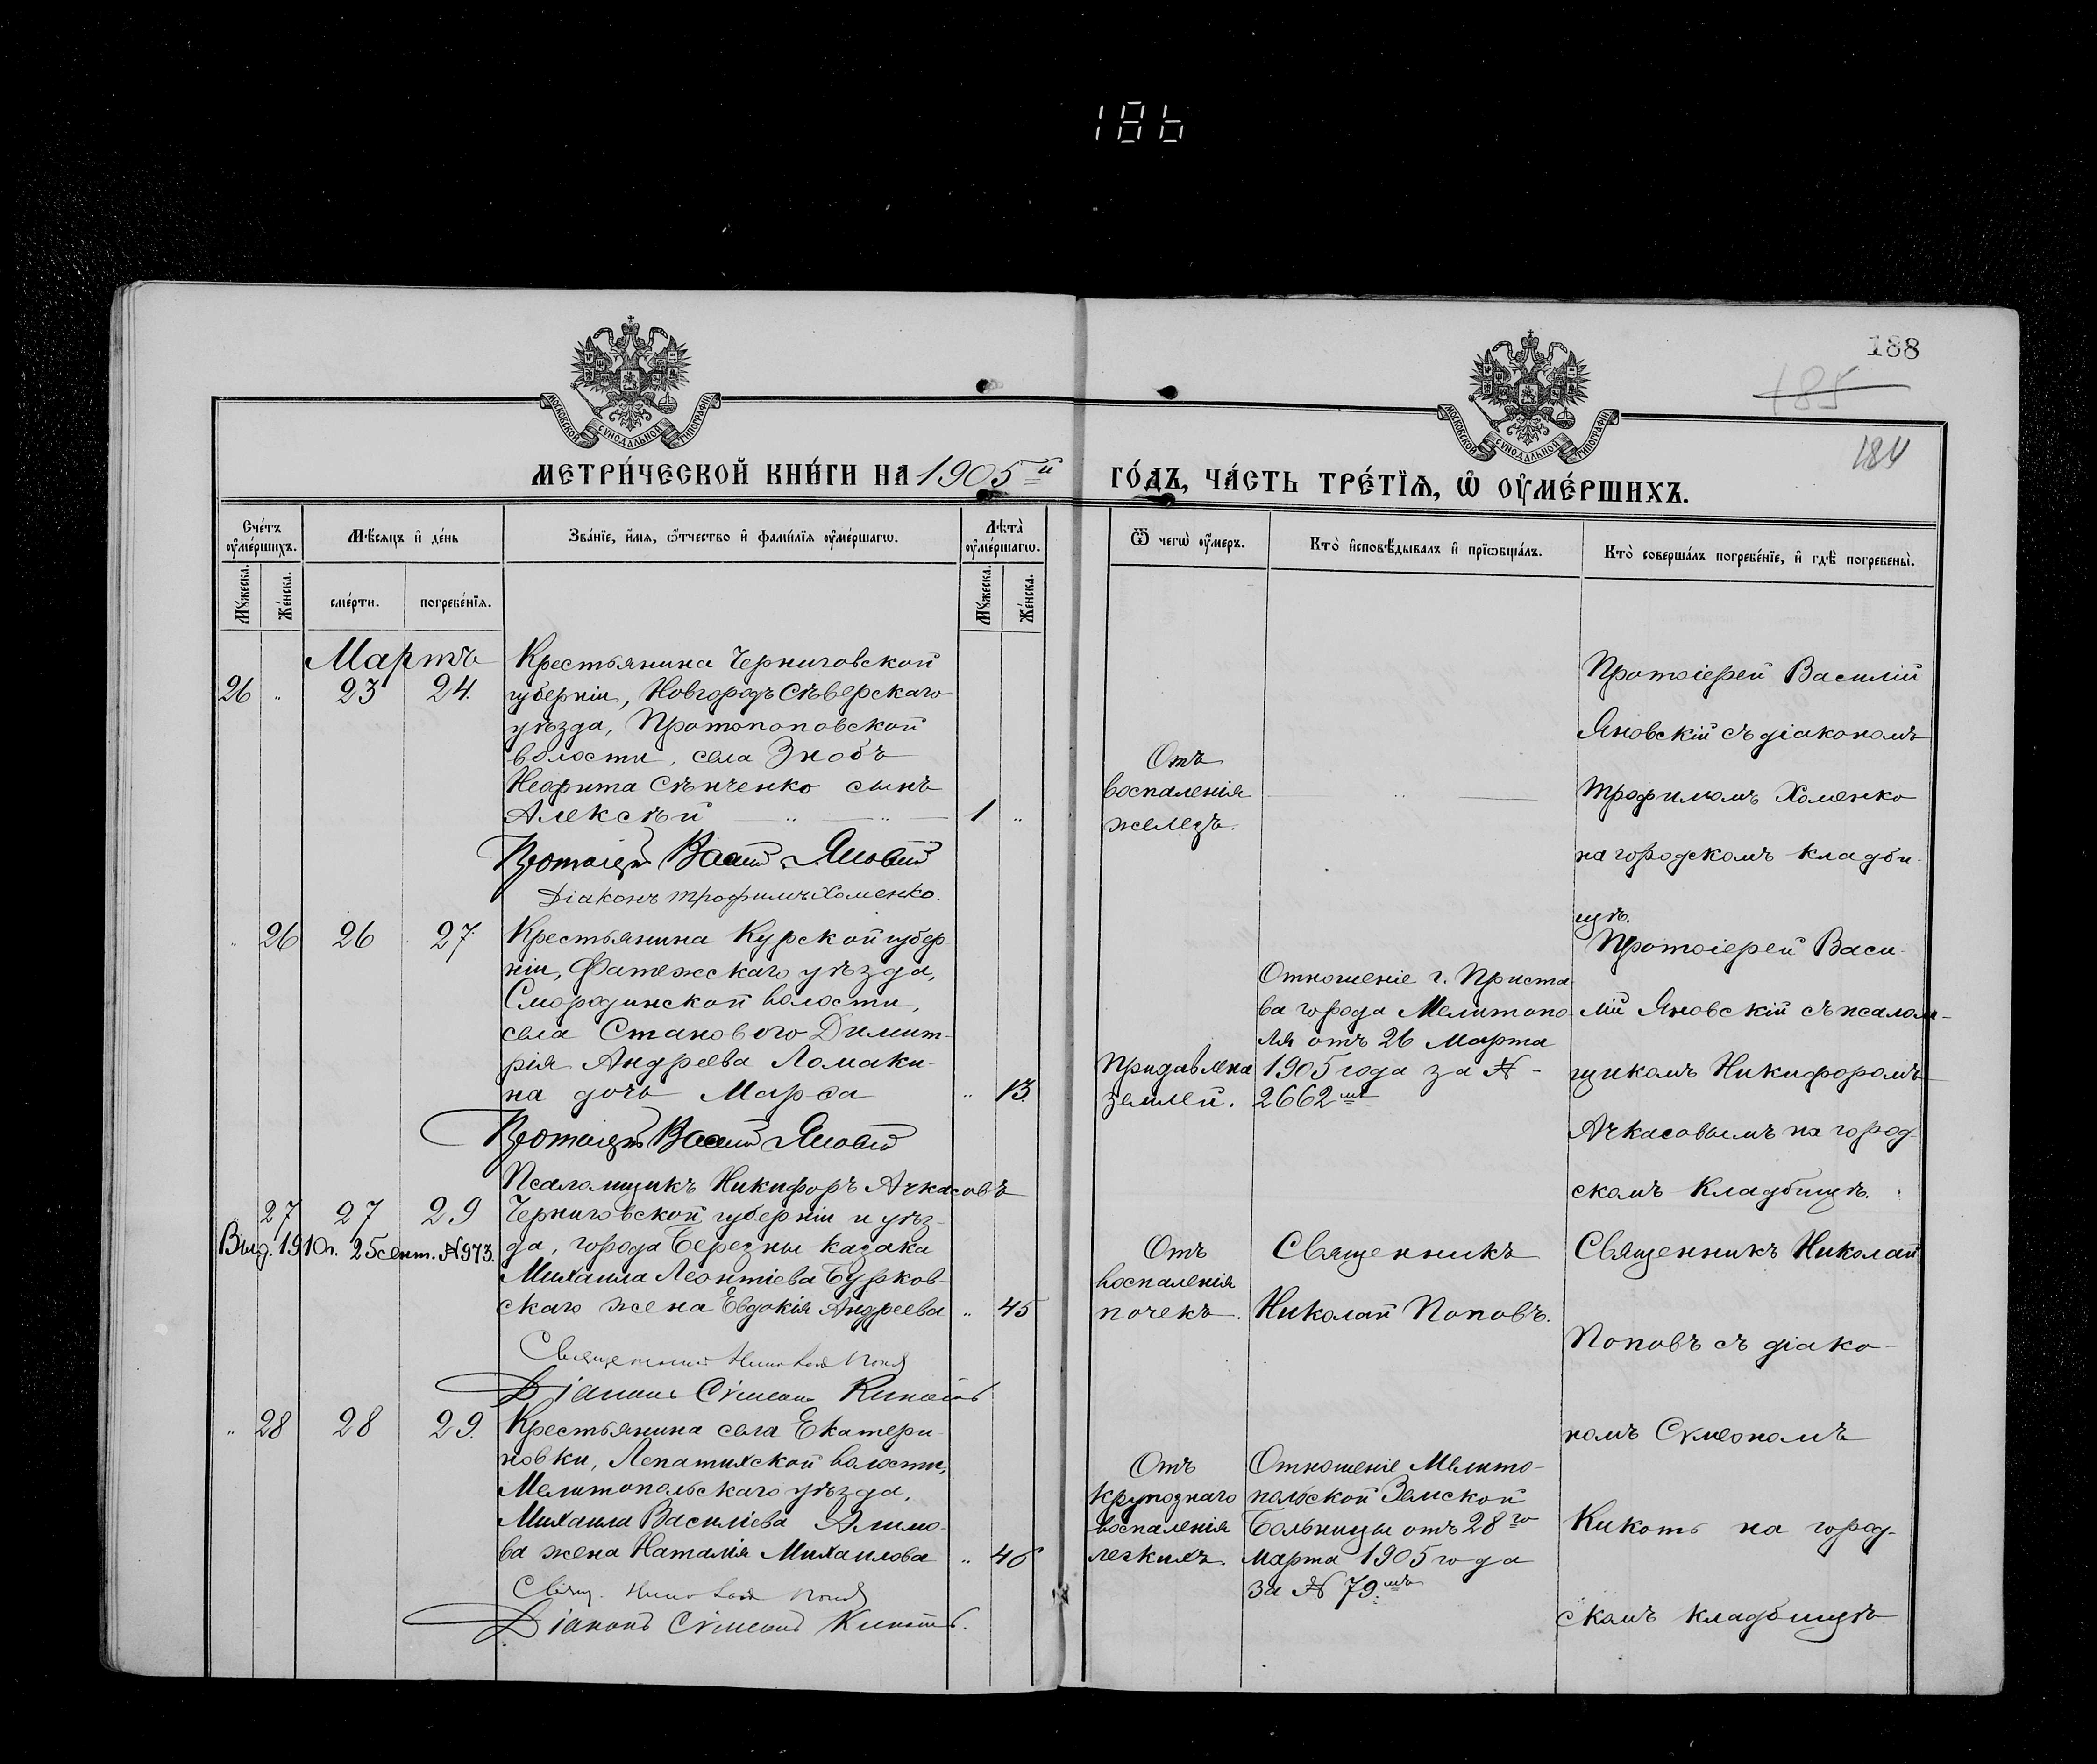 186
188
185
184
МОСКОВСКОЙ СУНОДАЛЬНОЙ ТИПОГРАФІИ
МОСКОВСКОЙ СУНОДАЛЬНОЙ ТИПОГРАФІИ
МЕТРИ́ЧЕСКОЙ КНИ́ГИ НА 1905й
ГО́ДЪ, ЧА́СТЬ ТРЕ́ТЇѦ, Ѡ҆ ОУ҆МЕ́РШИХЪ.
Сче́тъ оу҆ме́ршихъ.
Мѣ́сяцъ и҆ де́нь
Зва́нїе, и҆́мя, ѻ҆́тчество и҆ фами́лїя оу҆ме́ршагѡ.
Лѣта̀ оу҆ме́ршагѡ.
Ѿ чегѡ̀ оу҆́меръ.
Кто̀ и҆сповѣ́дывалъ и҆ прїѡбща́лъ.
Кто̀ соверша́лъ погребе́нїе, и҆ гдѣ̀ погребены̀.
Мꙋ́жеска.
Же́нска.
сме́рти.
погребе́нїѧ.
Мꙋ́жеска.
Же́нска.
Мартъ
26 " 23 24.
Крестьянина Черниговской
губерніи, Новгородъ Сѣверскаго
уѣзда, Протопоповской
волости, села Знобъ
Неофита Сѣнченко сынъ
Алексѣй 1 "
Протоіерей Василій Яновскій
Діаконъ Трофимъ Хоменко.
Отъ
воспаленія
железъ.
Протоіерей Василій
Яновскій съ діакономъ
Трофимомъ Хоменко
на городскомъ кладби-
щѣ.
" 26 26 27.
Крестьянина Курской губер-
ніи, Фатежскаго уѣзда,
Смородинской волости,
села Становаго Димит-
рія Андреева Ломаки-
на дочь Марѳа " 13.
Протоіерей Василій Яновскій
Псаломщикъ Никифоръ Ачкасовъ
Придавлена
землей.
Отношеніе г. Приста-
ва города Мелитопо-
ля отъ 26 Марта
1905 года за №-
2662мъ
Протоіерей Васи-
лій Яновскій съ псалом-
щикомъ Никифоромъ
Ачкасовымъ на город-
скомъ кладбищѣ.
27 27 29
Выд. 1910г. 25 сент. №973.
Черниговской губерніи и уѣз-
да, города Березны казака
Михаила Леонтіева Бурков-
скаго жена Евдокія Андреева " 45
Священникъ Николай Поповъ
Діаконъ Сѵмеонъ Кикоть
Отъ
воспаленія
почекъ.
Священникъ
Николай Поповъ.
Священникъ Николай
Поповъ съ діако-
номъ Сѵмеономъ
Кикоть на город-
скомъ кладбищѣ
" 28 28 29.
Крестьянина села Екатери-
новки, Лепатихской волости,
Мелитопольскаго уѣзда,
Михаила Василіева Алимо-
ва жена Наталія Михаилова " 46
Свящ. Николай Поповъ
Діаконъ Сѵмеонъ Кикоть.
Отъ
крупознаго
воспаленія
легкихъ.
Отношеніе Мелито-
польской Земской
Больницы отъ 28го
марта 1905 года
за № 79мъ